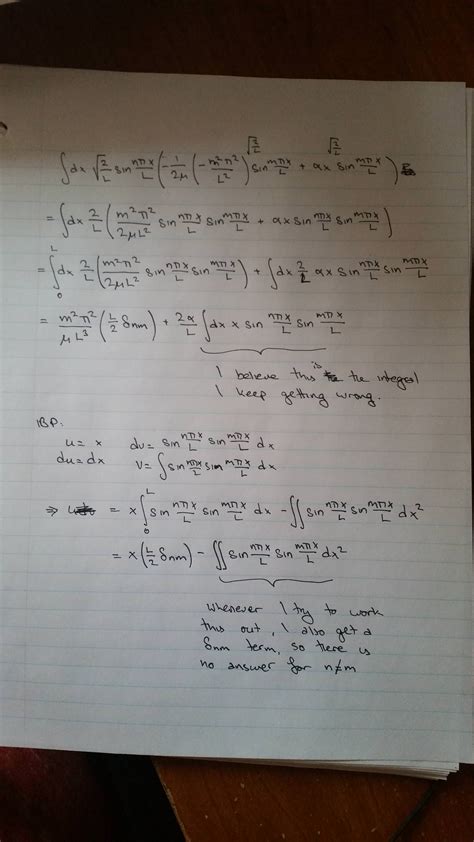 √(2/L) √(2/L)
∫dx √(2/L) sin nπx/L (-1/2μ (-m²π²/L²) sin mπx/L + αx sin mπx/L)
= ∫dx 2/L (m²π²/2μL² sin nπx/L sin mπx/L + αx sin nπx/L sin mπx/L)
= ∫₀ᴸ dx 2/L (m²π²/2μL² sin nπx/L sin mπx/L) + ∫dx 2/L αx sin nπx/L sin mπx/L
= m²π²/μL³ (L/2 δnm) + 2α/L ∫dx x sin nπx/L sin mπx/L
I believe this is the integral
I keep getting wrong.
IBP:
u = x dv = sin nπx/L sin mπx/L dx
du = dx v = ∫sin nπx/L sin mπx/L dx
⇒ = x∫₀ᴸ sin nπx/L sin mπx/L dx - ∬ sin nπx/L sin mπx/L dx²
= x(L/2 δnm) - ∬ sin nπx/L sin mπx/L dx²
Whenever I try to work
this out, I also get a
δnm term, so there is
no answer for n≠m